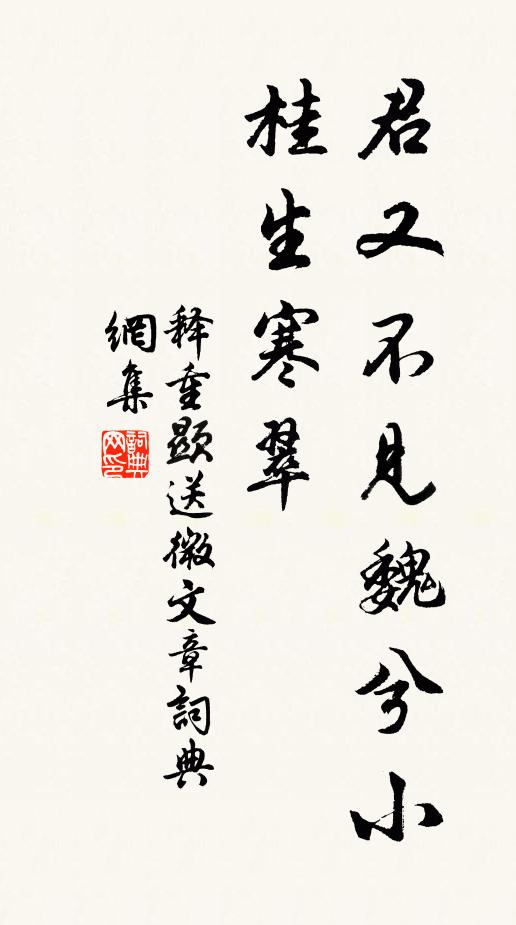 君又不见魏兮小
桂生寒翠
释重顯送微文章詞典
網集
詞典
网印